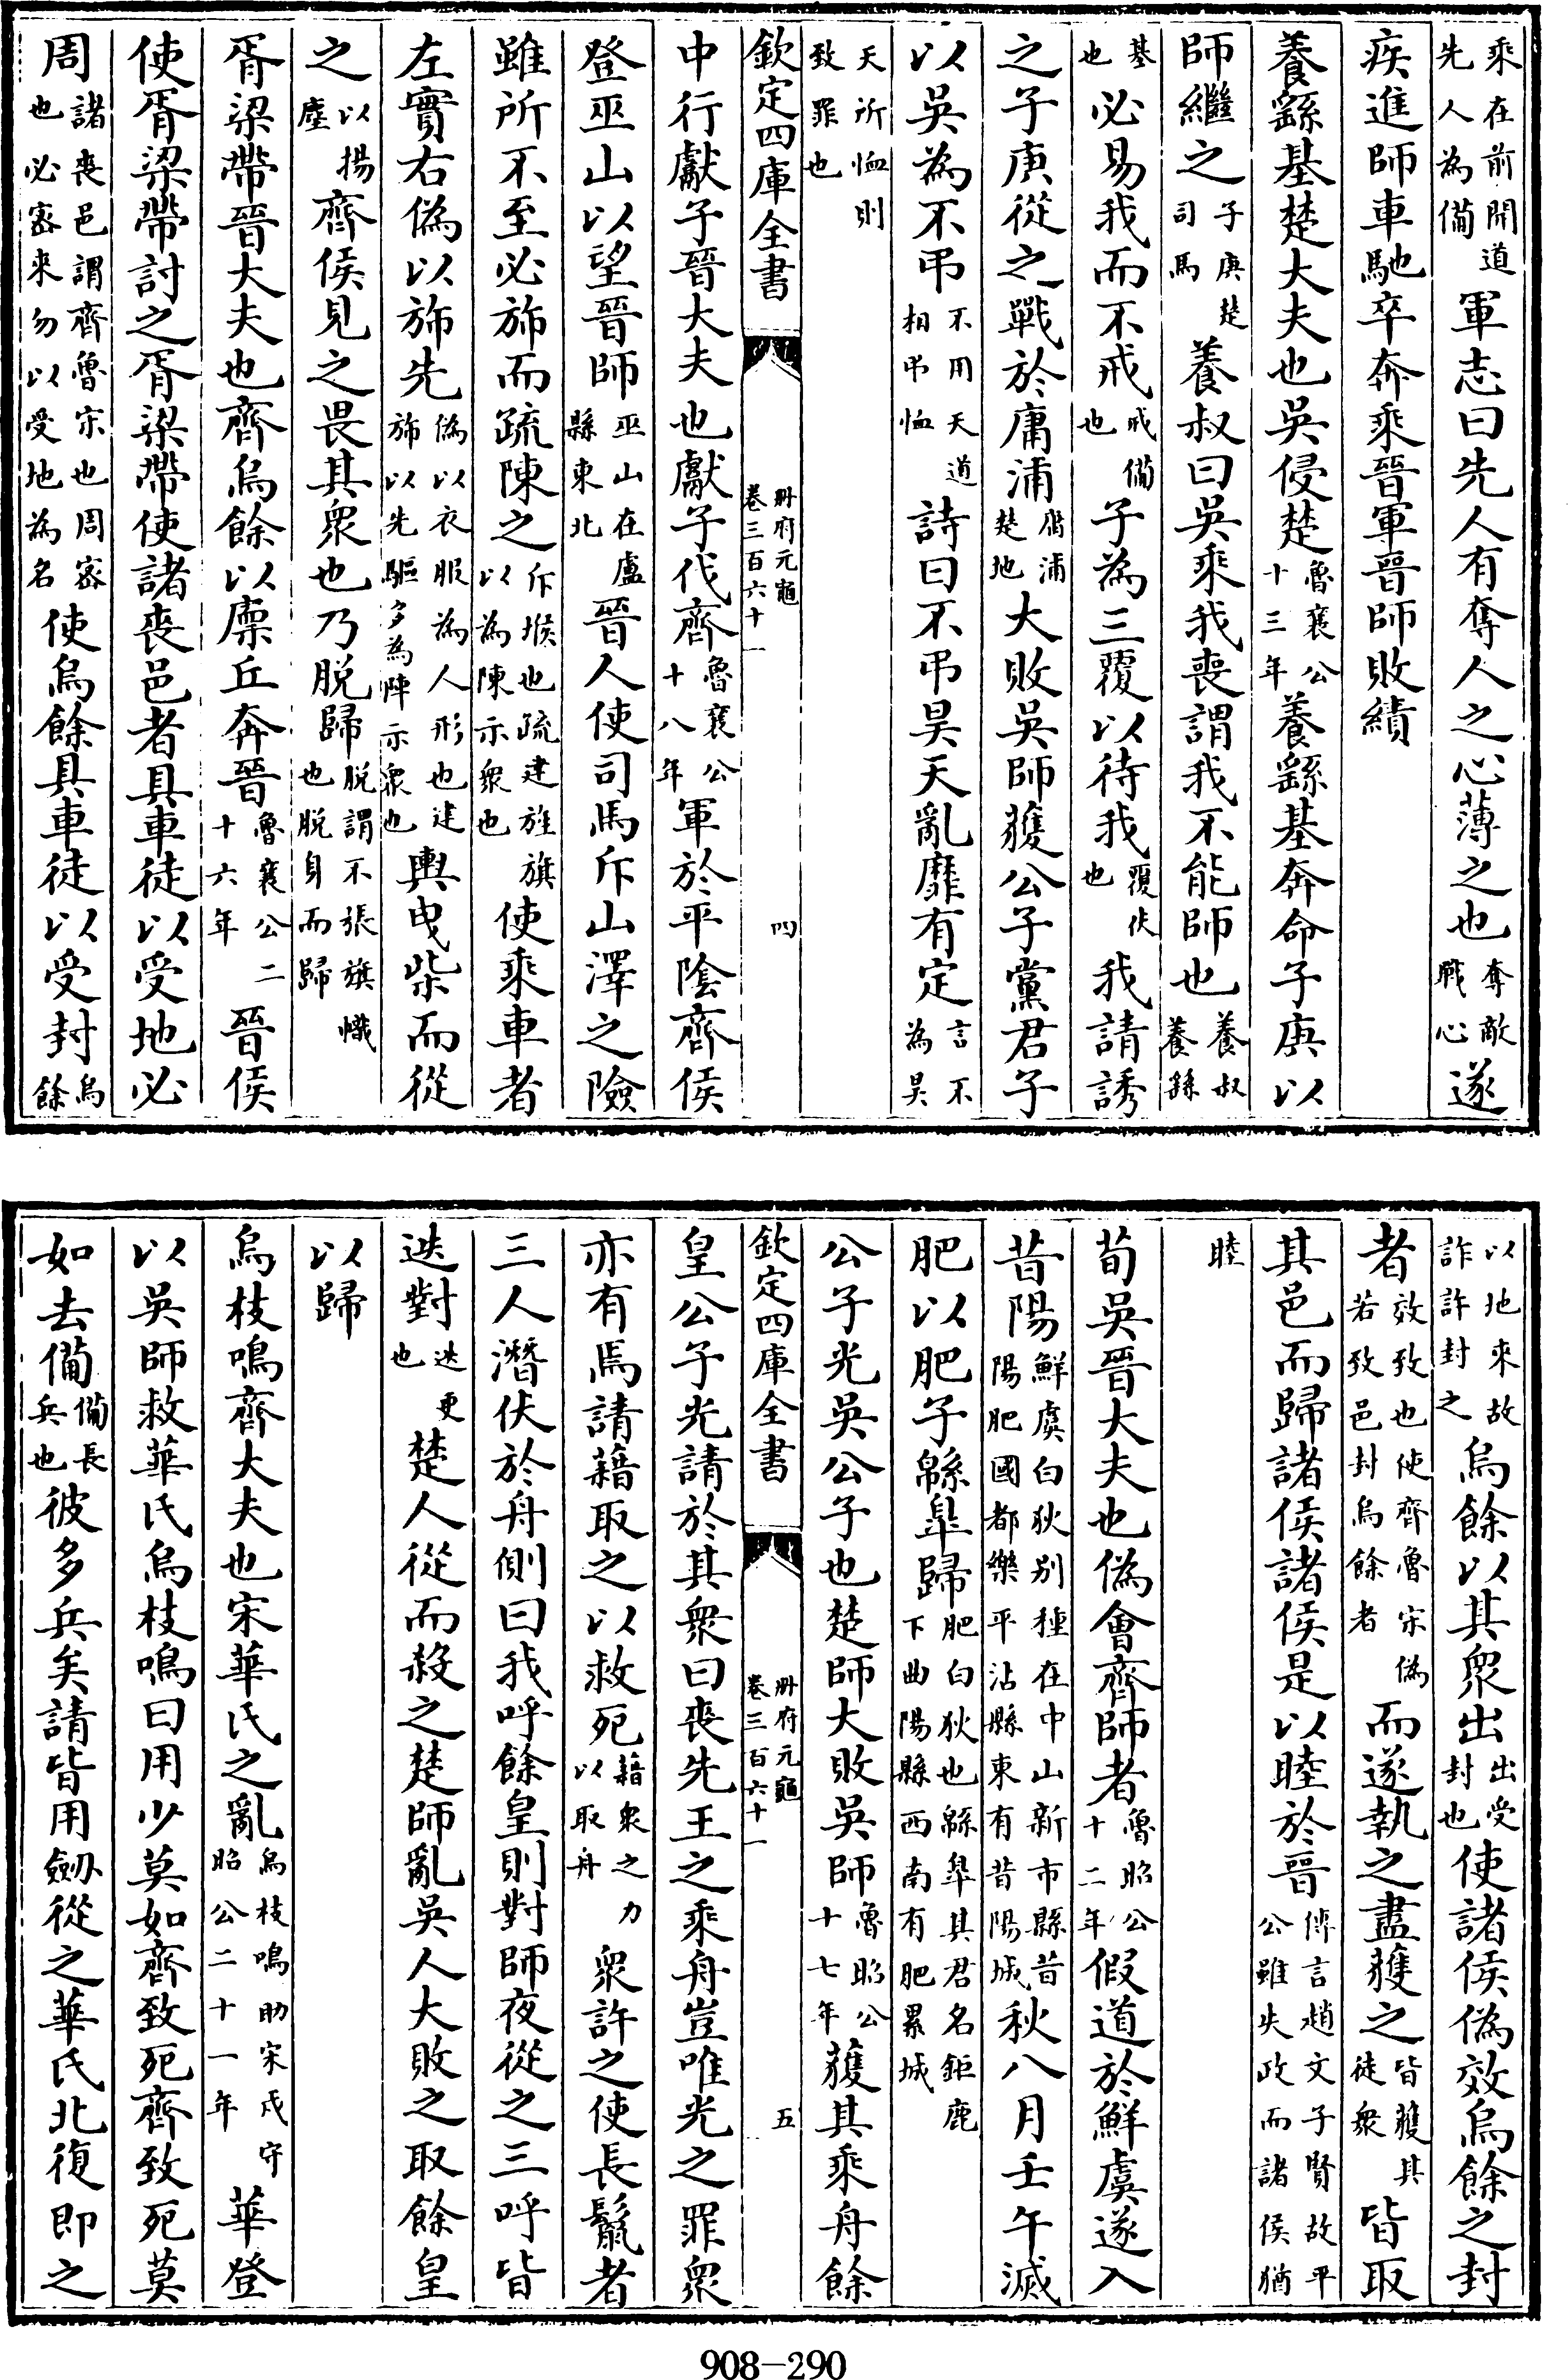 乘在前開道先人為備軍志曰先人有奪人之心薄之也奪敵戰心遂
疾進師車馳卒奔乘晉軍晉師敗績
養繇基楚大夫也吳侵楚魯襄公十三年養繇基奔命子庚以
師繼之子庚楚司馬養叔曰吳乘我喪謂我不能師也養叔養繇
基也必易我而不戒戒備也子為三覆以待我覆伏也我請誘
之子庚從之戰於庸浦庸浦楚地大敗吳師獲公子黨君子
以吳為不弔不用天道相弔恤詩曰不弔昊天亂靡有定言不為昊
天所恤則致罪也
欽定四庫全書 冊府元龜卷三百六十一 四
中行獻子晉大夫也獻子伐齊魯襄公十八年軍於平陰齊侯
登巫山以望晉師巫山在盧縣東北晉人使司馬斥山澤之險
雖所不至必斾而疏陳之斥堠也疏建旌旗以為陳示衆也使乘車者
左實右偽以斾先偽以衣服為人形也建斾以先驅多為陣示衆也輿曳柴而從
之以揚塵齊侯見之畏其衆也乃脱歸脱謂不張旗幟也脱身而歸
胥梁帶晉大夫也齊烏餘以廩丘奔晉魯襄公二十六年晉侯
使胥梁帶討之胥梁帶使諸喪邑者具車徒以受地必
周諸喪邑謂齊魯宋也周密也必密来勿以受地為名使烏餘具車徒以受封烏餘
以地來故詐許封之烏餘以其衆出出受封也使諸侯偽效烏餘之封
者效致也使齊魯宋偽若致邑封烏餘者而遂執之盡獲之皆獲其徒衆皆取
其邑而歸諸侯諸侯是以睦於晉傅言趙文子賢故平公雖失政而諸侯猶
睦
荀吳晉大夫也偽會齊師者魯昭公十二年假道於鮮虞遂入
昔陽鮮虞白狄别種在中山新市縣昔陽肥國都樂平沾縣東有昔陽城秋八月壬午滅
肥以肥子緜臯歸肥白狄也緜臯其君名鉅鹿下曲陽縣西南有肥累城
公子光吳公子也楚師大敗吳師魯昭公十七年獲其乘舟餘
欽定四庫全書 冊府元龜卷三百六十一 五
皇公子光請於其衆曰喪先王之乘舟豈唯光之罪衆
亦有焉請藉取之以救死藉衆之力以取舟衆許之使長鬛者
三人潛伏於舟側曰我呼餘皇則對師夜從之三呼皆
迭對迭更也楚人從而殺之楚師亂吳人大敗之取餘皇
以歸
烏枝鳴齊大夫也宋華氏之亂烏枝鳴助宋戍守昭公二十一年華登
以吳師救華氏烏枝鳴曰用少莫如齊致死齊致死莫
如去備備長兵也彼多兵矣請皆用劒從之華氏北復即之
908-290